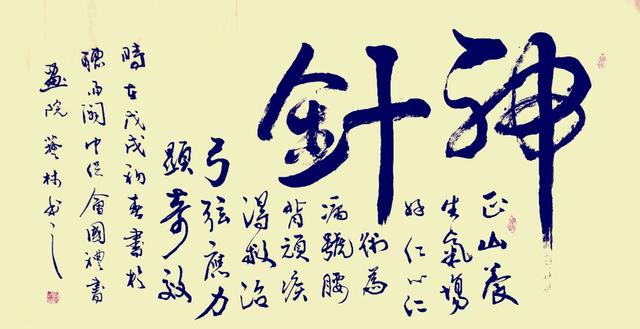 神針
正山養
生氣場
好仁心仁
術為
病號腰
背頑疾
得救治
弓弦應力
顯奇效
時在戊戌初春書於
聽雨閣中促會國禮書
畫院藝林书之